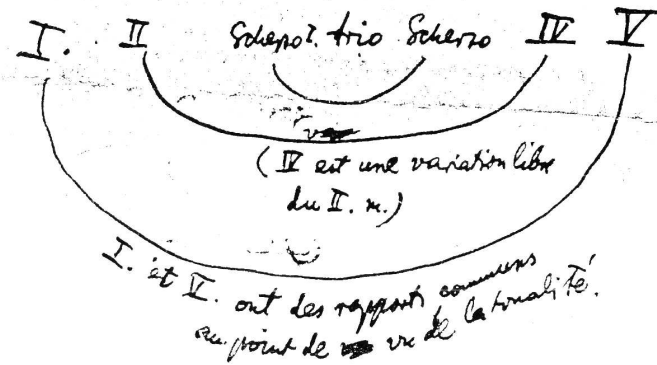 I. II Scherzo I. trio Scherzo IV V
(IV est une variation libre
du II. m.)
I. et V. ont des rapports communs
au point de vu de la tonalité.